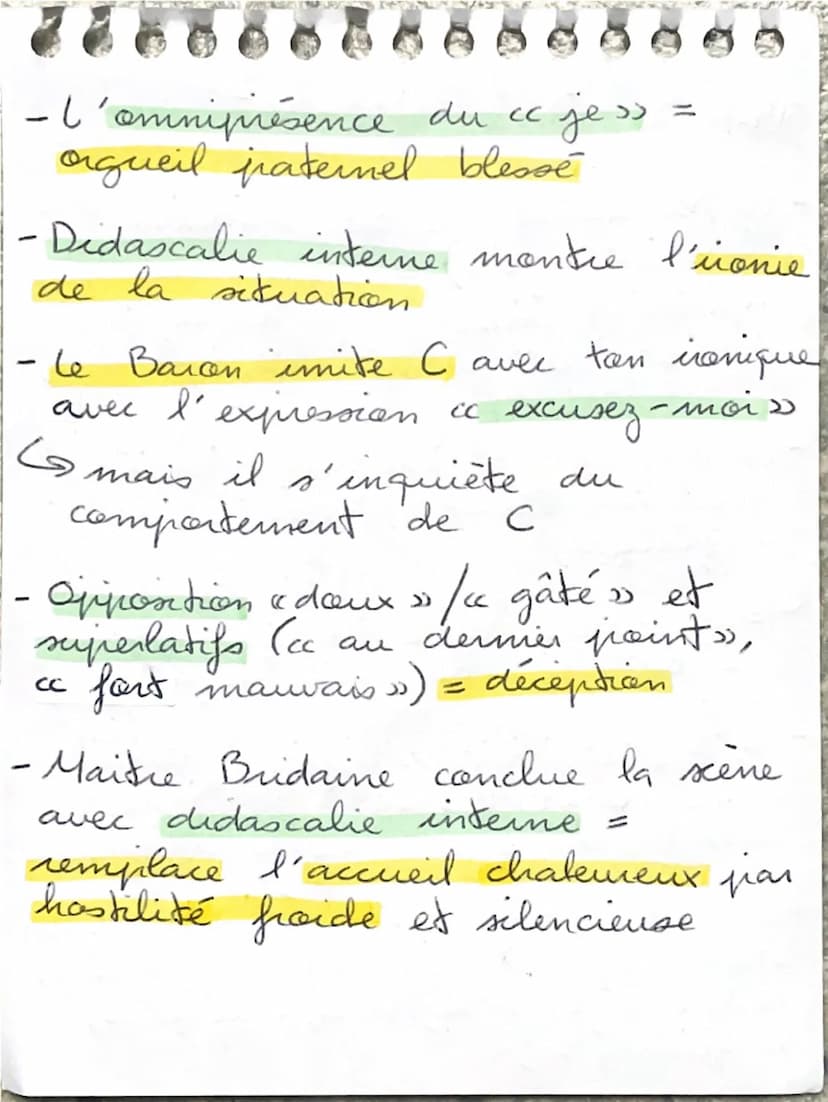 - L'omniprésence du « je » =
orgueil paternel blessé
- Didascalie interne montre l'ironie
de la situation
- Le Baron imite C avec ton ironique
avec l'expression « excusez-moi »
↳ mais il s'inquiète du
comportement de C
- Opposition « doux » / « gâté » et
superlatifs (« au dernier point »,
« fort mauvais ») = déception
- Maitre Bridaine conclue la scène
avec didascalie interne =
remplace l'accueil chaleureux par
hostilité froide et silencieuse